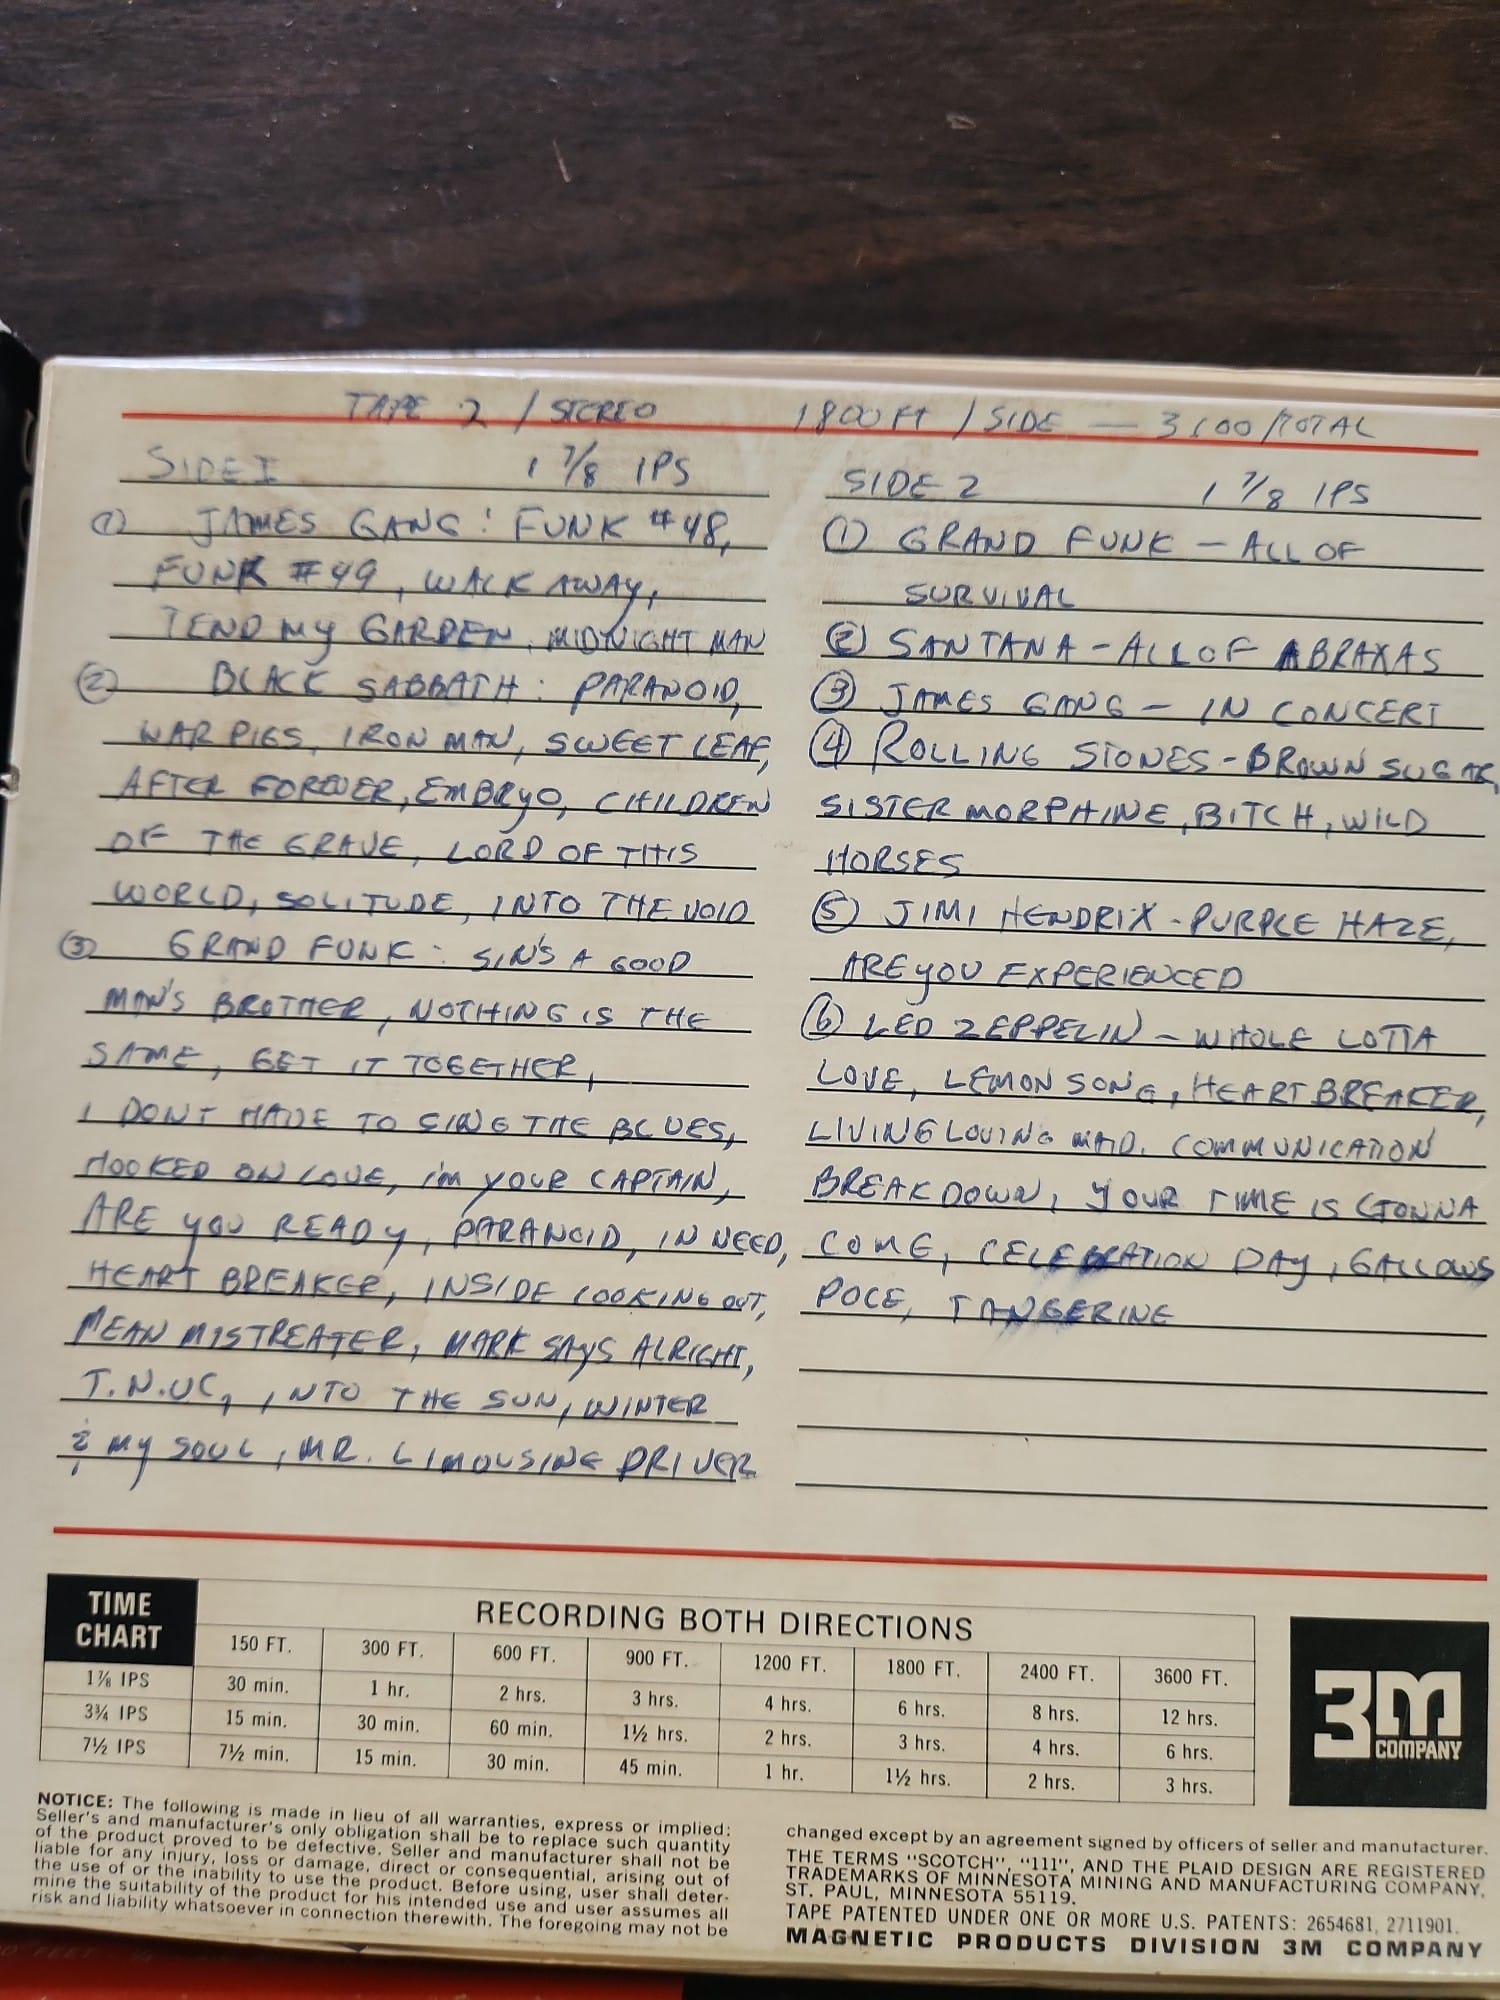 TAPE 2 / STEREO 1800 FT / SIDE — 3600/TOTAL
SIDE I 1 7/8 IPS
① JAMES GANG: FUNK #48,
FUNK #49, WALK AWAY,
TEND MY GARDEN, MIDNIGHT MAN
② BLACK SABBATH: PARANOID,
WAR PIGS, IRON MAN, SWEET LEAF,
AFTER FOREVER, EMBRYO, CHILDREN
OF THE GRAVE, LORD OF THIS
WORLD, SOLITUDE, INTO THE VOID
③ GRAND FUNK: SIN'S A GOOD
MAN'S BROTHER, NOTHING IS THE
SAME, GET IT TOGETHER,
I DONT HAVE TO SING THE BLUES,
HOOKED ON LOVE, I'M YOUR CAPTAIN,
ARE YOU READY, PARANOID, IN NEED,
HEART BREAKER, INSIDE LOOKING OUT,
MEAN MISTREATER, MARK SAYS ALRIGHT,
T.N.U.C, INTO THE SUN, WINTER
& MY SOUL, MR. LIMOUSINE DRIVER
SIDE 2 1 7/8 IPS
① GRAND FUNK – ALL OF
SURVIVAL
② SANTANA – ALL OF ABRAXAS
③ JAMES GANG – IN CONCERT
④ ROLLING STONES – BROWN SUGAR,
SISTER MORPHINE, BITCH, WILD
HORSES
⑤ JIMI HENDRIX – PURPLE HAZE,
ARE YOU EXPERIENCED
⑥ LED ZEPPELIN – WHOLE LOTTA
LOVE, LEMON SONG, HEART BREAKER,
LIVING LOVING MAID, COMMUNICATION
BREAKDOWN, YOUR TIME IS GONNA
COME, CELEBRATION DAY, GALLOWS
POLE, TANGERINE
TIME CHART
RECORDING BOTH DIRECTIONS
150 FT. 300 FT. 600 FT. 900 FT. 1200 FT. 1800 FT. 2400 FT. 3600 FT.
1⅞ IPS 30 min. 1 hr. 2 hrs. 3 hrs. 4 hrs. 6 hrs. 8 hrs. 12 hrs.
3¾ IPS 15 min. 30 min. 60 min. 1½ hrs. 2 hrs. 3 hrs. 4 hrs. 6 hrs.
7½ IPS 7½ min. 15 min. 30 min. 45 min. 1 hr. 1½ hrs. 2 hrs. 3 hrs.
3M
COMPANY
NOTICE: The following is made in lieu of all warranties, express or implied:
Seller's and manufacturer's only obligation shall be to replace such quantity
of the product proved to be defective. Seller and manufacturer shall not be
liable for any injury, loss or damage, direct or consequential, arising out of
the use of or the inability to use the product. Before using, user shall deter-
mine the suitability of the product for his intended use and user assumes all
risk and liability whatsoever in connection therewith. The foregoing may not be
changed except by an agreement signed by officers of seller and manufacturer.
THE TERMS "SCOTCH", "111", AND THE PLAID DESIGN ARE REGISTERED
TRADEMARKS OF MINNESOTA MINING AND MANUFACTURING COMPANY,
ST. PAUL, MINNESOTA 55119.
TAPE PATENTED UNDER ONE OR MORE U.S. PATENTS: 2654681, 2711901.
MAGNETIC PRODUCTS DIVISION 3M COMPANY